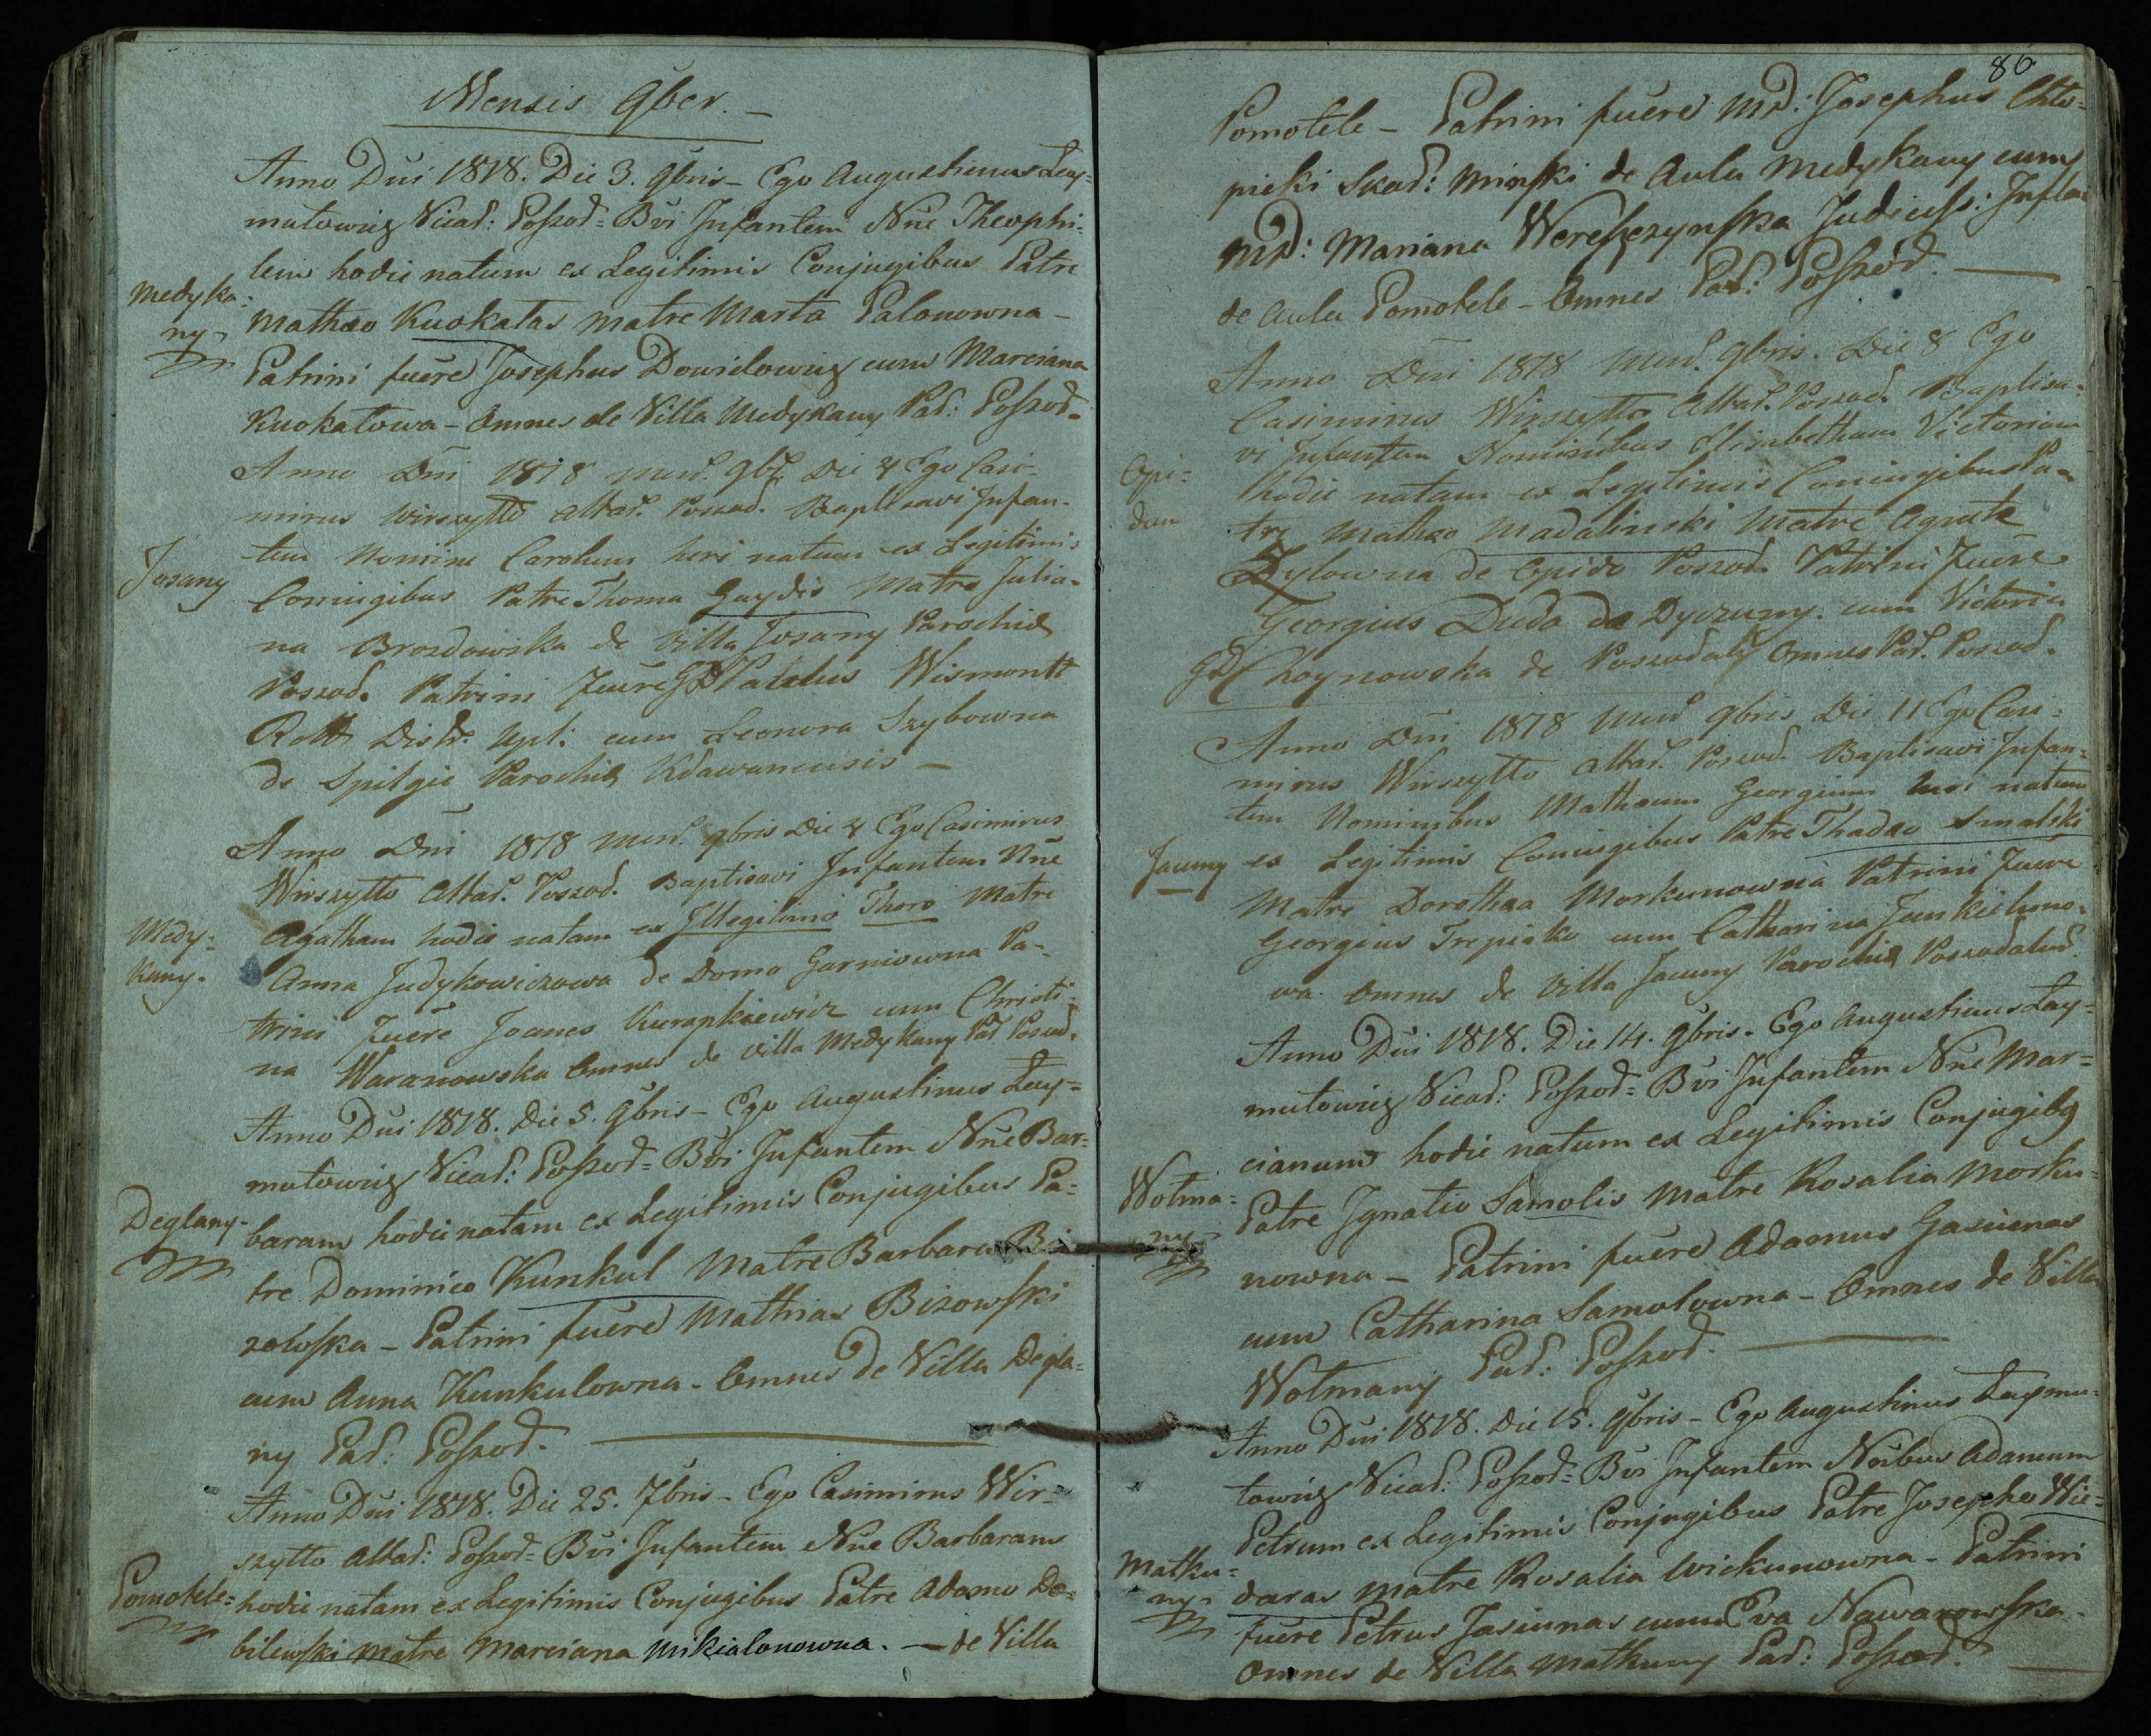 Mensis 9ber. -
Anno Dni 1818. Die 3. 9bris - Ego Augustinus Lay=
mutowicz Vicar: Poszod= Bvi Infantem Nne Theophi=
lem hodie natum ex Legitimis Conjugibus Patre
Medyka=
ny
Mathæo Kuokatas Matre Marta Palonowna -
Patrini fuere Josephus Dowidowicz cum Marciana
Kuokatowa - Omnes de Villa Medykany Par: Poszod=
Anno Dni 1818 Mens. 9br. Die 4 Ego Casi=
mirus Wirszytto Altar. Poszod. Baptisavi Infan=
tem Nomine Carolum heri natum ex Legitimis
Josany
Coniugibus Patre Thoma Gaydis Matre Julia=
na Brozdowska de Villa Josany Parochiæ
Poszod. Patrini fuere GD Palatus Wismontt
Rott Distr. Upt: cum Leonora Szybowna
de Spilgie Parochiæ Kdawanensis -
Anno Dni 1818 Mens. 9bris Die 4 Ego Casimirus
Wirszytto Altar. Poszod. Baptisavi Infantem Nne
Medy=
kany.
Agatham hodie natam ex Illegitimo Thoro Matre
Anna Judykowiczowa de Domo Garniowna Pa=
trini fuere Joanes Kurapkiewicz cum Christi=
na Waranowska Omnes de Villa Medykany Par Poszod.
Anno Dni 1818. Die 5. 9bris - Ego Augustinus Lay=
mutowicz Vicar: Poszod= Bvi Infantem Nne Bar=
Deglany-
baram hodie natam ex Legitimis Conjugibus Pa=
tre Dominico Kunkul Matre Barbara Bi
zowska - Patrini fuere Mathias Bizowski
cum Anna Kunkulowna - Omnes de Villa Degla=
ny Par: Poszod.
Anno Dni 1818. Die 25. 7bris - Ego Casimirus Wir=
szytto Altar: Poszod= Bvi Infantem Nne Barbaram
Pomotele=
hodie natam ex Legitimis Conjugibus Patre Adamo Do=
bilewski Matre Marciana Mikialonowna. - de Villa
86
Pomotele - Patrini fuere MD: Josephus Chło=
picki Skar: Minski de Aula Medykany cum
MD: Mariana Wereszczynska Judiciss: Infla
de Aula Pomotele - Omnes Par: Poszod.
Anno Dni 1818 Mens. 9bris. Die 8 Ego
Casimirus Wirszytto Altar. Poszod. Baptisa=
vi Infantem Nominibus Elisabetham Victoriam
Opi=
dum
hodie natam ex Legitimis Coniugibus Pa=
tre Mathæo Madalinski Matre Agata
Zylowna de Opido Poszod. Patrini fuere
Georgius Duda de Dyrzuny. cum Victoria
GD Choynowska de Poszodaly Omnes Par. Poszod.
Anno Dni 1818 Mens 9bris Die 11 Ego Casi=
mirus Wirszytto Altar. Poszod. Baptisavi Infan=
tem Nominibus Mathæum Georgium heri natum
Jacuny
ex Legitimis Coniugibus Patre Thadæo Smalski
Matre Dorothæa Morkunowna Patrini fuere
Georgius Trepisko cum Catharina Junkieluno=
wa. Omnes de Villa Jacuny Parochiæ Poszodalens.
Anno Dni 1818. Die 14. 9bris. Ego Augustinus Lay=
mutowicz Vicar: Poszod= Bvi Infantem Nne Mar=
cianum hodie natum ex Legitimis Conjugibg
Wotma=
ny
Patre Ignatio Samolis Matre Rosalia Morku=
nowna - Patrini fuere Adamus Gasiunas
cum Catharina Samolowna - Omnes de Villa
Wotmany Par: Poszod.
Anno Dni 1818. Die 15. 9bris - Ego Augustinus Laymu=
towicz Vicar: Poszod= Bvi Infantem Nnibus Adamum
Petrum ex Legitimis Conjugibus Patre Josepho Wie=
Matku=
ny
daras Matre Rosalia Wickunowna - Patrini
fuere Petrus Jasiunas cum Eva Nawarowska -
Omnes de Villa Mathuny Par: Poszod.